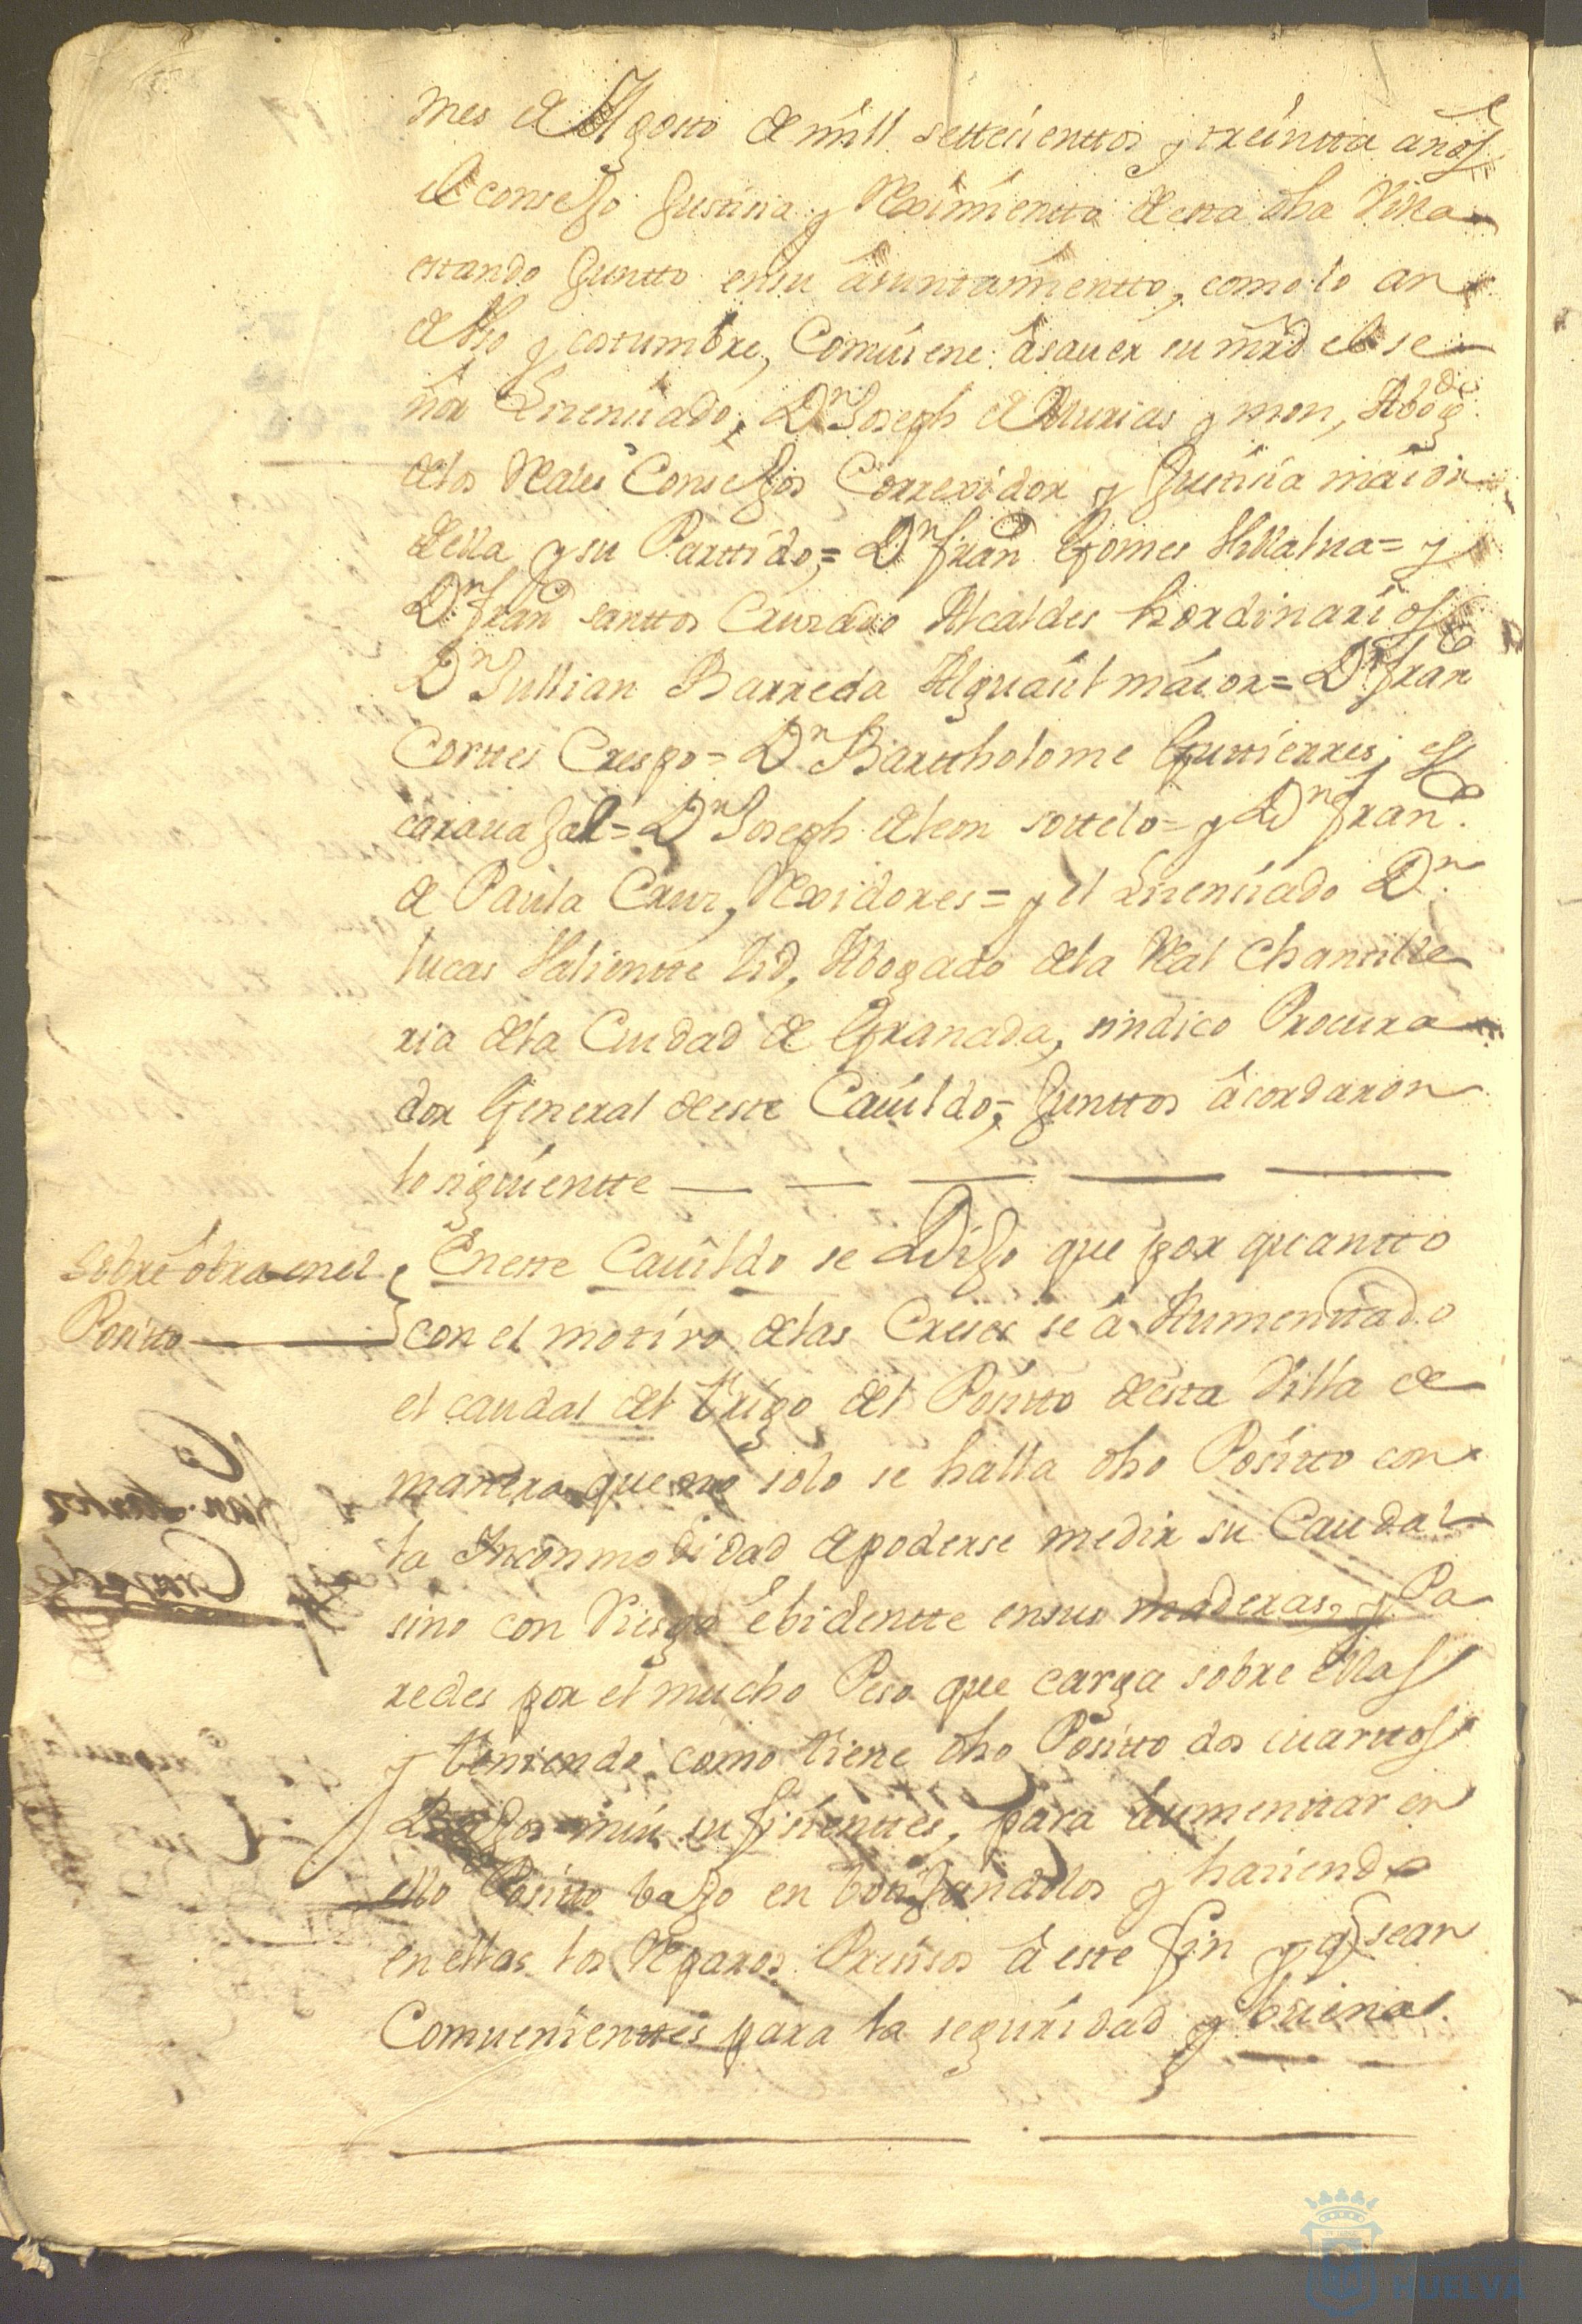 mes de Agosto de mill settecienttos y treíntta años
el consejo Justicia y Reximientto desta dha Villa
estando Juntto ensu aiuntamientto, como lo an
de Uso y costumbre, Comuiene âsauer su mrd el se
ñor Lizenciado, Dn Joseph de Asturias y mon, Abogdo
delos Reales Consejos Correxidor y Justicia maior
della y su Parttido,= Dn franco Gomes Villalua= y
Dn franco santtos Cruzado Alcaldes hordinarios
Dn Jullian Barreda Alguácil máior= Dn franco
Corttes Crespo= Dn Barttholome Guttierres, es
carauajal= Dn Joseph deleon sottelo= y Dn franco
de Paula Cruz, Rexidores= y el Lizenciado Dn
lucas Valientte Cid, Abogado dela Real Chanzille
ria dela Ciudad de Granada, sindico Procura
dor General deeste Cauildo,= Junttos âcordaron
lo siguientte
Sobre obra en el
Positto
En este Cauildo se Dijo que por quantto
con el motivo delas Creses se â Aumenttado
el caudal del trigo del Positto desta Villa de
manera que no solo se halla dho Positto con
la Inconmodidad depoderse medir su Caudal
sino con Riesgo Ebidentte ensus maderas, y Pa
redes por el mucho Peso que carga sobre ellas
y teniendo como tiene dho Positto dos cuarttos
Bajos mui sufizienttes, para aumenttar en
ello Positto bajo en y haziendo
en ellas los Reparos Precisos â este fin y q sean
Comuenienttes para la seguridad y buena
HUELVA